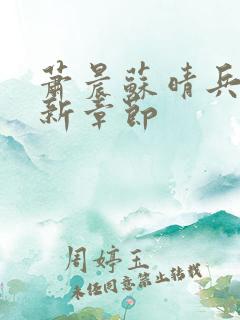 萧晨苏晴兵
新章即
周婷玉
未经同意禁止转载